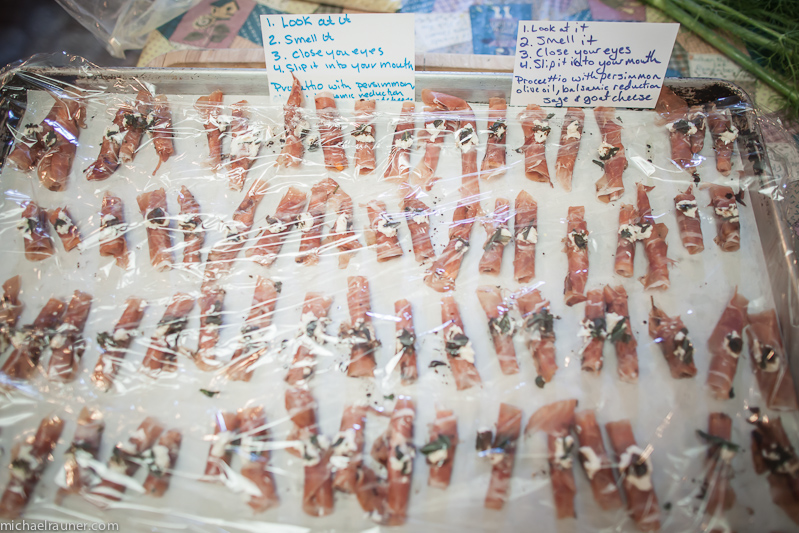 1. Look at it
2. Smell it
3. Close you eyes
4. Slip it into your mouth
Proccttio with persimmon
reduction
1. Look at it
2. Smell it
3. Close your eyes
4. Slip it into your mouth
Proccettio with persimmon
olive oil, balsamic reduction
sage & goat cheese
michaelrauner.com